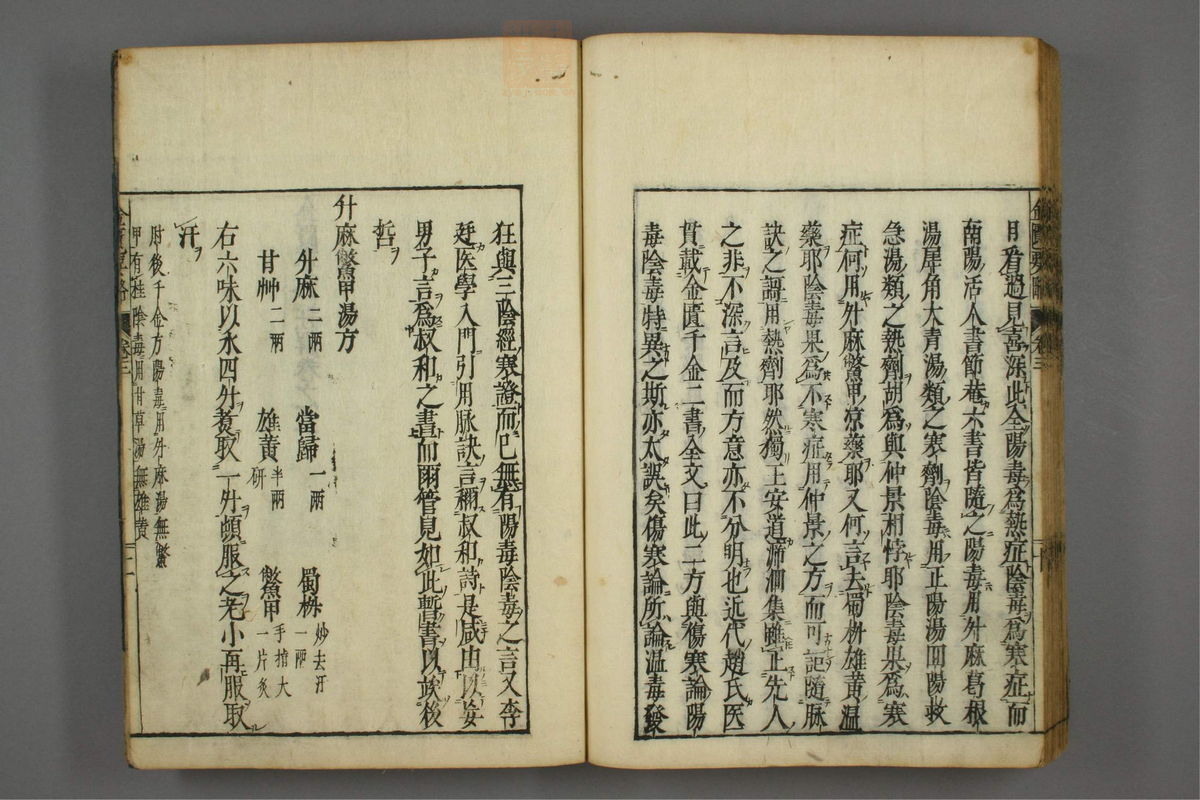 目看過見喜深此全陽毒爲熱症陰毒爲寒症而
南陽活人書節菴六書皆隨之陽毒用升麻葛根
湯犀角大青湯類之寒劑陰毒用正陽湯回陽救
急湯類之熱劑胡爲與仲景相悖耶陰毒果爲寒
症何用升麻鱉甲凉藥耶又何言去蜀椒雄黄温
藥耶陰毒果爲不寒症用仲景之方而可記隨脉
訣之謌用熱劑耶然獨王安道泝洄集雖正先人
之非不深言及而方意亦不分明也近代趙氏医
貫載金匱千金二書全文曰此二方與傷寒論陽
毒陰毒特異之斯亦太誤矣傷寒論所論温毒發
狂與三陰經寒證而已無有陽毒陰毒之言又李
廷医學入門引用脉訣言稱叔和詩是咸由以妄
男子言爲叔和之書而爾管見如此暫書以竢後
哲
升麻鱉甲湯方
升麻二兩 當歸一兩 蜀椒炒去汗一兩
甘艸二兩 雄黄半兩研 鱉甲手掐大一片炙
右六味以水四升煮取一升頓服之老小再服取
汗
肘後千金方陽毒用升麻湯無鱉
甲有桂陰毒用甘草湯無雄黄
卷三